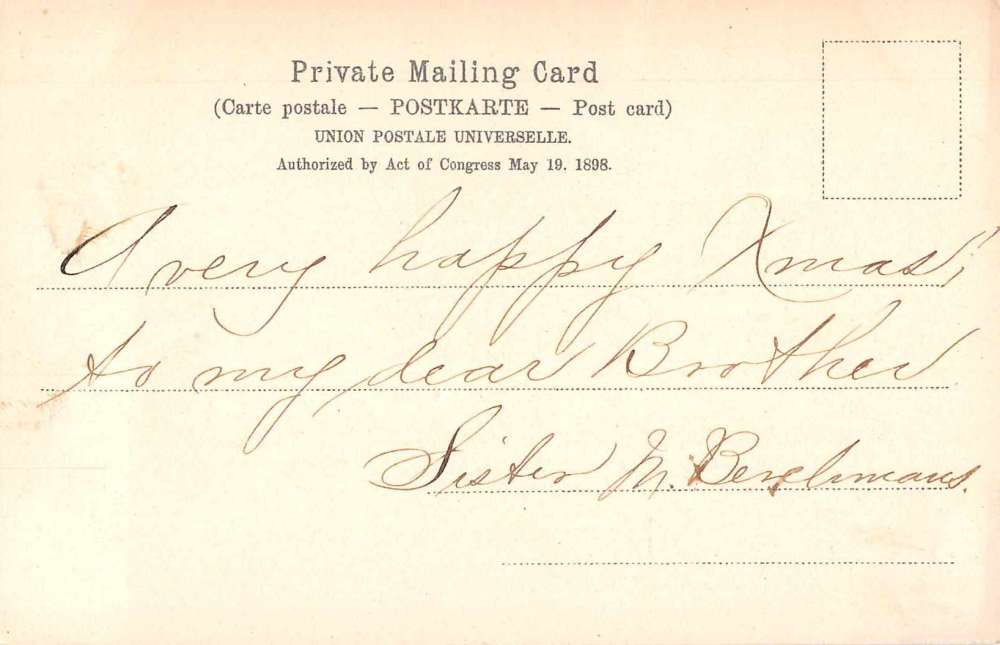 Private Mailing Card
(Carte postale — POSTKARTE — Post card)
UNION POSTALE UNIVERSELLE.
Authorized by Act of Congress May 19. 1898.
A very happy Xmas,
to my dear Brother
Sister M. Berchmans.